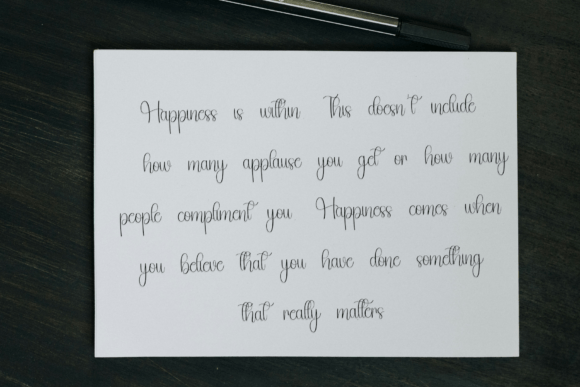 Happiness is within This doesn't include
how many applause you get or how many
people compliment you Happiness comes when
you believe that you have done something
that really matters